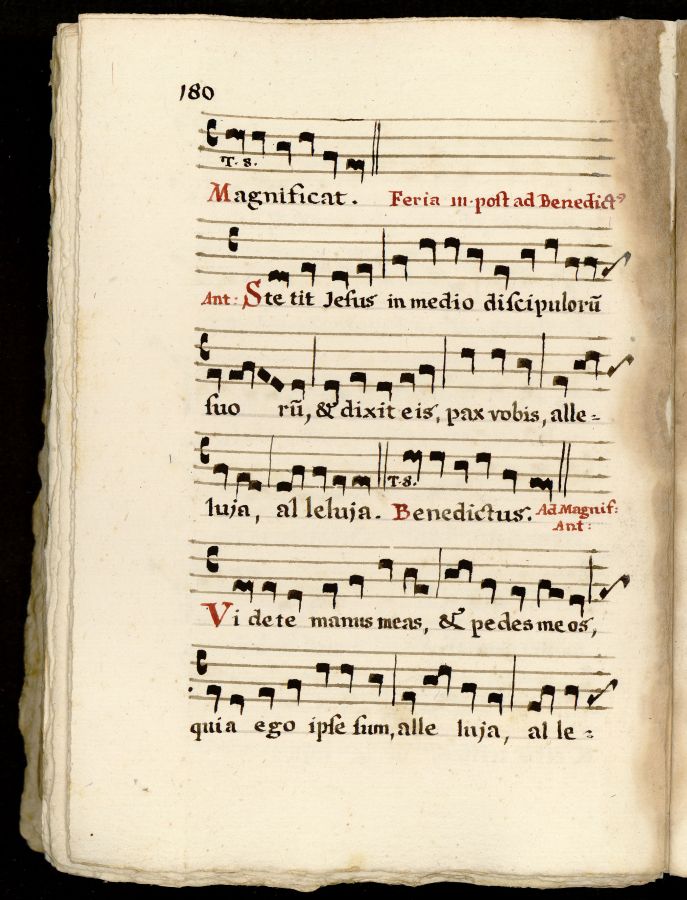 180
T. 8.
Magnificat. Feria III. poſt ad Benedictꝰ
Ant: Ste tit Jeſus in medio diſcipulorū
ſuo rū, & dixit eis, pax vobis, alle=
T. 8.
luja, al leluja. Benedictus. Ad Magnif:
Ant:
Vi dete manus meas, & pedes me os,
quia ego ipſe ſum, alle luja, al le =